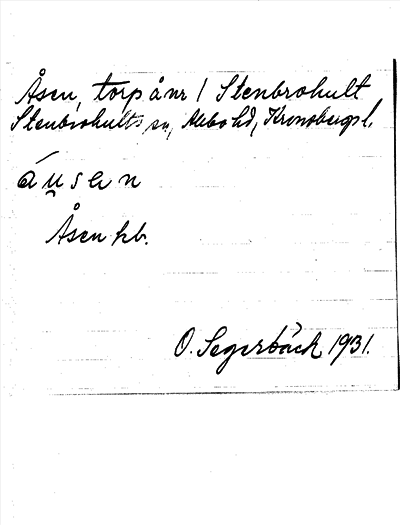 Åsen, torp å nr 1 Stenbrohult
Stenbrohults sn, Allbo hd, Kronobergs l.
áu̯sɐn
Åsen kb.
O. Segerbäck 1931.